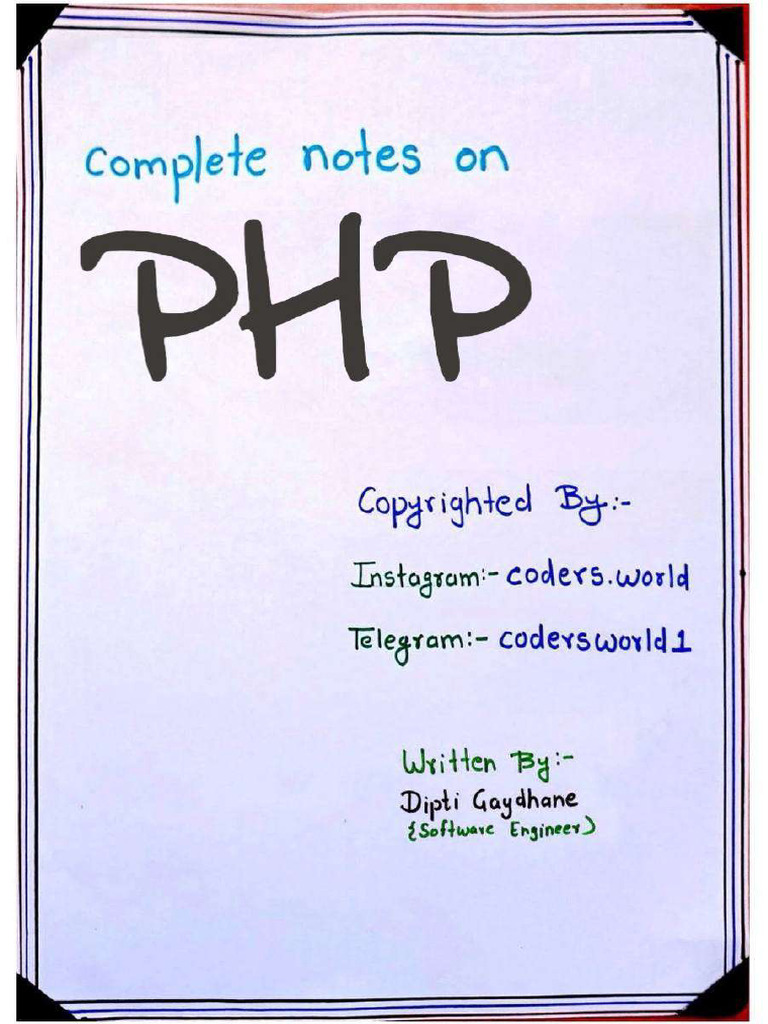 Complete notes on
PHP
Copyrighted By:-
Instagram:- coders.world
Telegram:- codersworld1
Written By:-
Dipti Gaydhane
{Software Engineer)